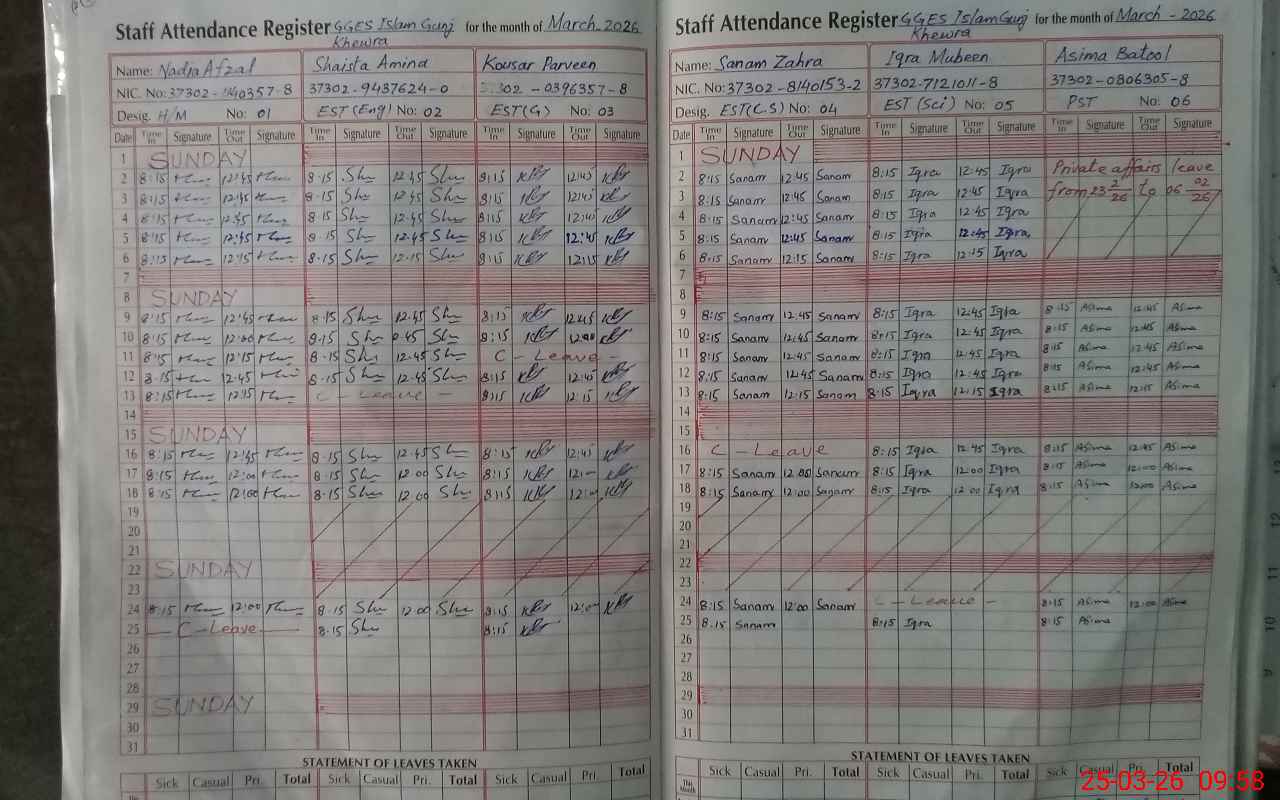 Staff Attendance Register GGES Islam Gunj Khewra for the month of March-2026
Name: Nadia Afzal Shaista Amina Kousar Parveen
NIC. No: 37302- 37302-9437624-0 302-0396357-8
Desig. H/M No: 01 EST(Eng) No: 02 EST(G) No: 03
Date Time In Signature Time Out Signature Time In Signature Time Out Signature Time In Signature Time Out Signature
1 SUNDAY
2 8:15 12:45 8:15 Sh 12:45 Sh 8:15 12:45
3 8:15 12:45 8:15 Sh 12:45 Sh 8:15 12:45
4 8:15 12:45 8:15 Sh 12:45 Sh 8:15 12:45
5 8:15 12:45 8:15 Sh 12:45 Sh 8:15 12:45
6 8:15 12:15 8:15 Sh 12:15 Sh 8:15 12:15
7
8 SUNDAY
9 8:15 12:45 8:15 Sh 12:45 Sh 8:15 12:45
10 8:15 12:00 8:15 Sh Sh 8:15
11 8:15 12:15 8:15 Sh 12:45 Sh C - Leave -
12 8:15 12:45 8:15 Sh 12:45 Sh 8:15 12:45
13 8:15 12:15 C - Leave - 8:15 12:15
14
15 SUNDAY
16 8:15 12:45 8:15 Sh 12:45 Sh 8:15 12:45
17 8:15 12:00 8:15 Sh 12:00 Sh 8:15
18 8:15 12:00 8:15 Sh 12:00 Sh 8:15
19
20
21
22 SUNDAY
23
24 8:15 12:00 8:15 Sh 12:00 Sh 8:15
25 C-Leave 8:15 Sh 8:15
26
27
28
29 SUNDAY
30
31
STATEMENT OF LEAVES TAKEN
Sick Casual Pri. Total Sick Casual Pri. Total Sick Casual Pri. Total
Staff Attendance Register GGES Islam Gunj Khewra for the month of March - 2026
Name: Sanam Zahra Iqra Mubeen Asima Batool
NIC. No: 37302-8140153-2 37302-7121011-8 37302-0806305-8
Desig. EST(C.S) No: 04 EST (Sci) No: 05 PST No: 06
Date Time In Signature Time Out Signature Time In Signature Time Out Signature Time In Signature Time Out Signature
1 SUNDAY
2 8:15 Sanam 12:45 Sanam 8:15 Iqra 12:45 Iqra Private affairs leave
3 8:15 Sanam 12:45 Sanam 8:15 Iqra 12:45 Iqra from 23 2/26 to 06 02/26
4 8:15 Sanam 12:45 Sanam 8:15 Iqra 12:45 Iqra
5 8:15 Sanam 12:45 Sanam 8:15 Iqra 12:45 Iqra
6 8:15 Sanam 12:15 Sanam 8:15 Iqra 12:15 Iqra
7
8
9 8:15 Sanam 12:45 Sanam 8:15 Iqra 12:45 Iqra 8:15 Asima 12:45 Asima
10 8:15 Sanam 12:45 Sanam 8:15 Iqra 12:45 Iqra 8:15 Asima 12:45 Asima
11 8:15 Sanam 12:45 Sanam 8:15 Iqra 12:45 Iqra 8:15 Asima 12:45 Asima
12 8:15 Sanam 12:45 Sanam 8:15 Iqra 12:45 Iqra 8:15 Asima 12:45 Asima
13 8:15 Sanam 12:15 Sanam 8:15 Iqra 12:15 Iqra 8:15 Asima 12:15 Asima
14
15
16 C - Leave 8:15 Iqra 12:45 Iqra 8:15 Asima 12:45 Asima
17 8:15 Sanam 12:00 Sanam 8:15 Iqra 12:00 Iqra 8:15 Asima 12:00 Asima
18 8:15 Sanam 12:00 Sanam 8:15 Iqra 12:00 Iqra 8:15 Asima 12:00 Asima
19
20
21
22
23
24 8:15 Sanam 12:00 Sanam C - Leave - 8:15 Asima 12:00 Asima
25 8:15 Sanam 8:15 Iqra 8:15 Asima
26
27
28
29
30
31
STATEMENT OF LEAVES TAKEN
This Month Sick Casual Pri. Total Sick Casual Pri. Total Sick Casual Pri. Total
25-03-26 09:58